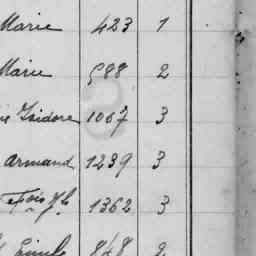 Marie 423 1
Marie 588 2
Isidore 1067 3
Armand 1239 3
1362 3
848 2